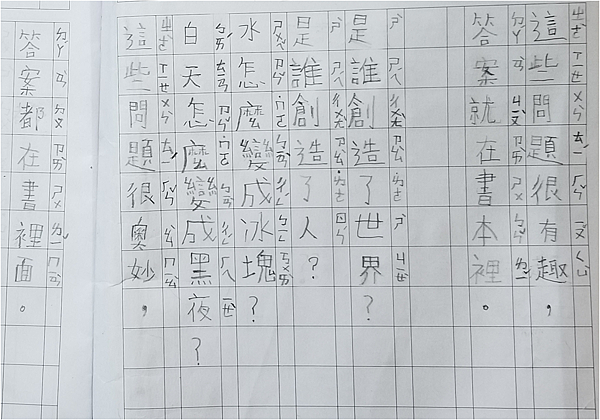 這些問題很有趣，
答案就在書本裡。
是誰創造了世界？
是誰創造了人？
水怎麼變成冰塊？
白天怎麼變成黑夜？
這些問題很奧妙，
答案都在書裡面。